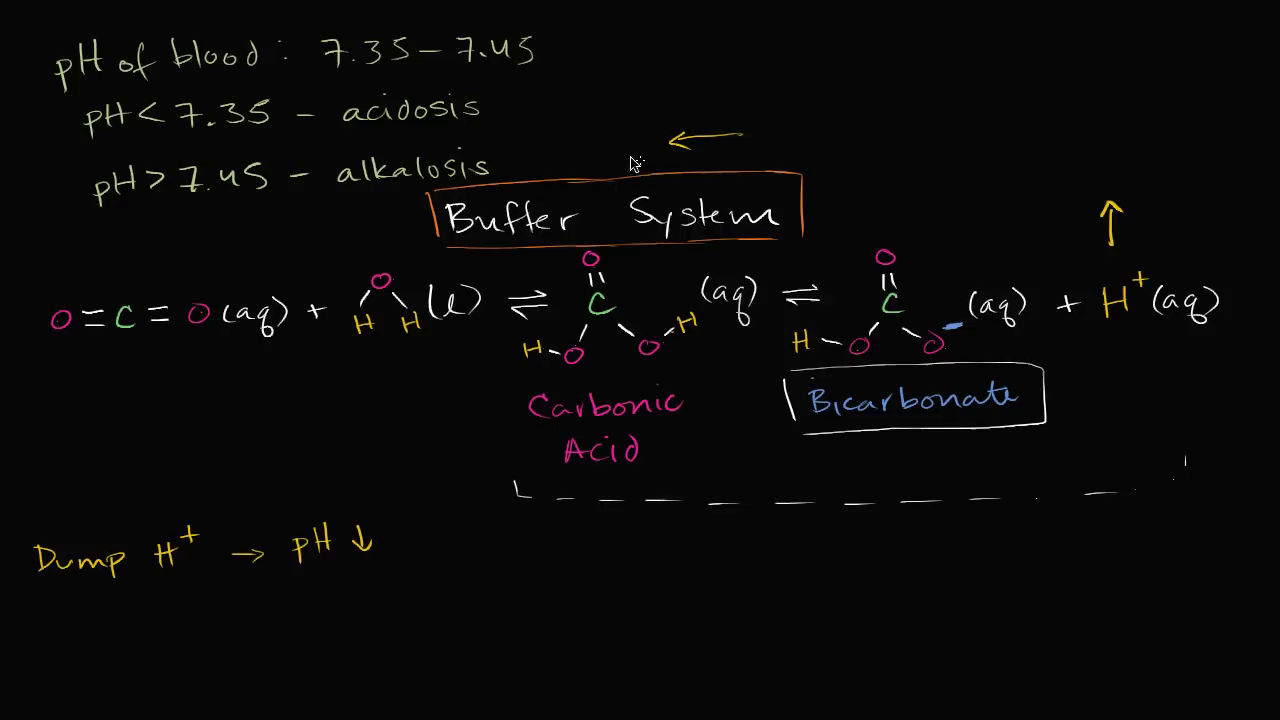 pH of blood: 7.35 - 7.45
pH < 7.35 - acidosis
pH > 7.45 - alkalosis
Buffer System
O=C=O (aq) + H O H (l) ⇌ H O C O O H (aq) ⇌ H O C O O⁻ (aq) + H⁺ (aq)
Carbonic
Acid
Bicarbonate
Dump H⁺ → pH ↓